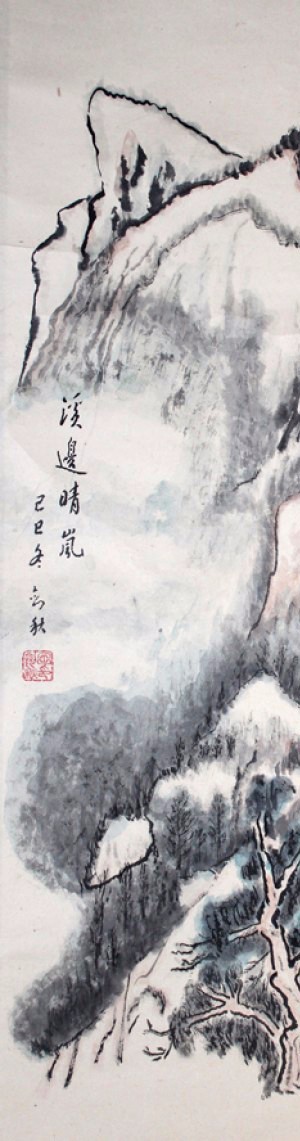 溪邊晴嵐
己巳冬 秋